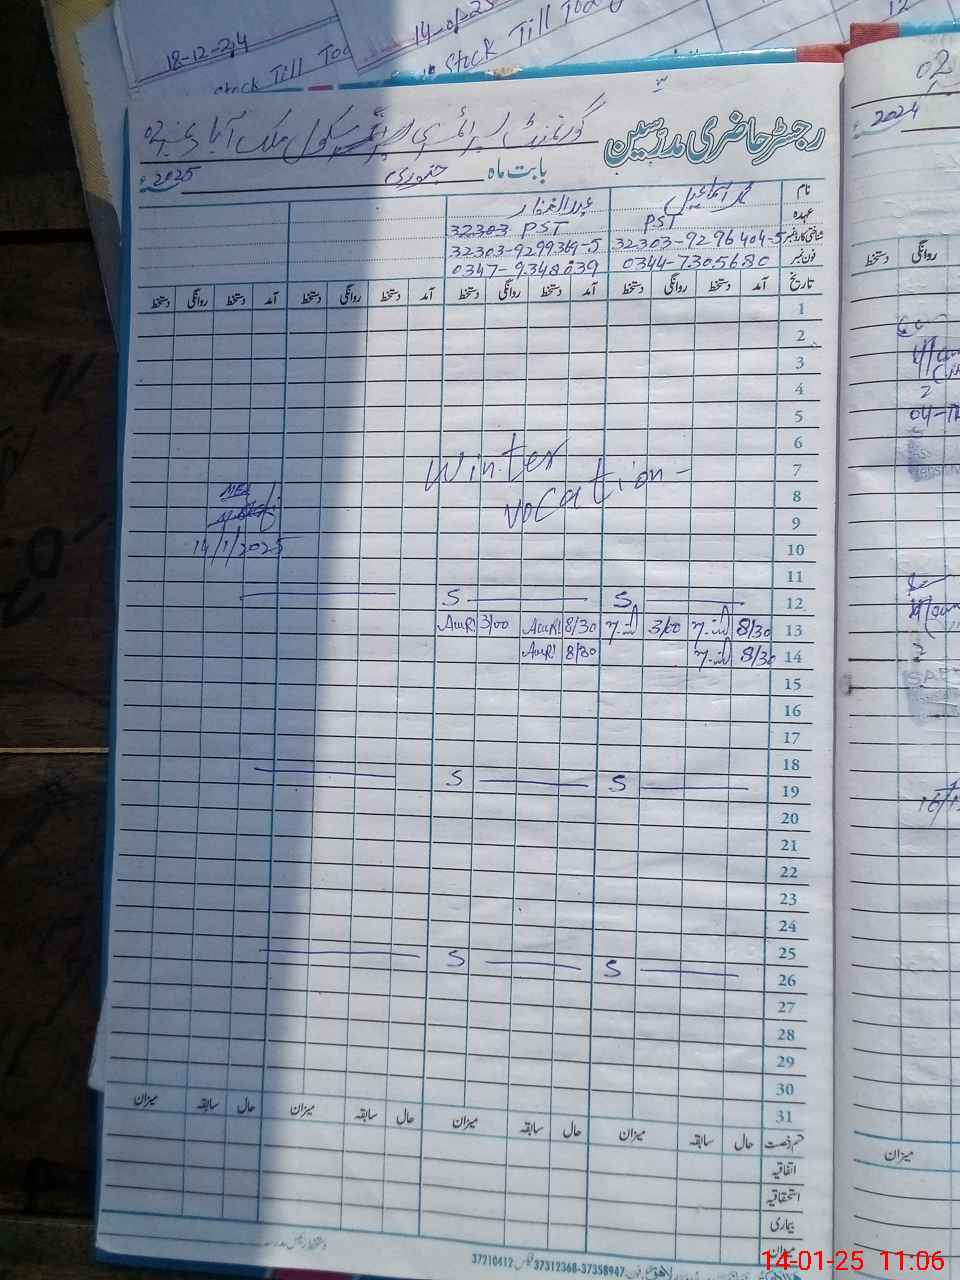 18-12-24
14-01-25
Stock Till
Stock Till Tod
12
رجسٹر حاضری مدرسین
گورنمنٹ پرائمری سکول ملک آباد
بابت ماہ جنوری 2025ء
02
2024
نام
عبدالغفار
عہدہ PST
32303 PST
شناختی کارڈ نمبر 32303-9296404-5
32303-9299369-5
فون نمبر 0344-7305680
0347-9348039
تاریخ آمد دستخط روانگی دستخط آمد دستخط روانگی دستخط آمد دستخط روانگی دستخط آمد دستخط روانگی دستخط
روانگی دستخط
1
2
3
4
5
6
Winter
7
vocation -
8
9
10
14/1/2025
11
12 S S
13 8/30 3/00 8/30 3/00
14 8/30 8/30
15
16
17
18
19 S S
20
21
22
23
24
25
26 S S
27
28
29
30
31
قسم رخصت حال سابقہ میزان حال سابقہ میزان حال سابقہ میزان حال سابقہ میزان
میزان
اتفاقیہ
استحقاقیہ
بیماری
میزان
37312368-37358947 فیکس 37210412
14-01-25 11:06